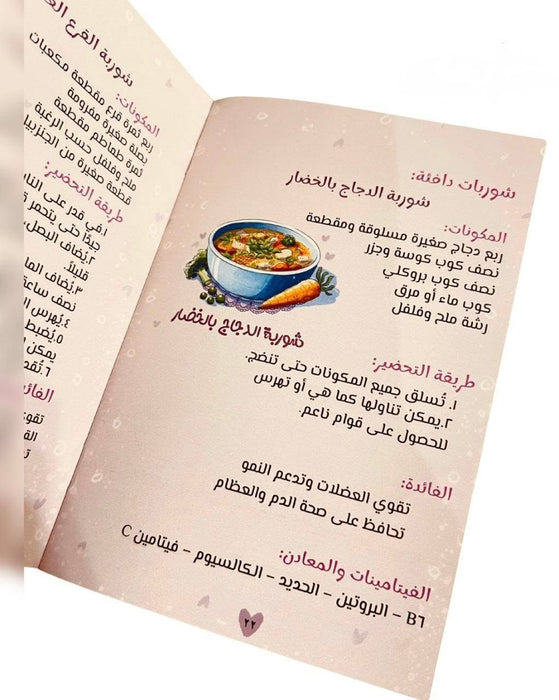 شوربات دافئة:
شوربة الدجاج بالخضار
المكونات:
ربع دجاج صغيرة مسلوقة ومقطعة
نصف كوب كوسة وجزر
نصف كوب بروكلي
كوب ماء أو مرق
رشة ملح وفلفل
شوربة الدجاج بالخضار
طريقة التحضير:
١. تُسلق جميع المكونات حتى تنضج.
٢.يمكن تناولها كما هي أو تهرس
للحصول على قوام ناعم.
الفائدة:
تقوي العضلات وتدعم النمو
تحافظ على صحة الدم والعظام
الفيتامينات والمعادن:
B٦ – البروتين – الحديد – الكالسيوم – فيتامين C
٢٢
شوربة القرع
المكونات:
ربع ثمرة قرع مقطعة مكعبات
بصلة صغيرة مفرومة
ثمرة طماطم مقطعة
ملح وفلفل حسب الرغبة
قطعة صغيرة من الجنزبيل
طريقة التحضير:
١.في قدر على النار
جيدًا حتى يتحمر
٢.يُضاف البصل
قليلاً.
٣.يُضاف
نصف ساعة
٤.يُهرس
٥.يُضبط
يمكن
٦
الفائدة
تقوي